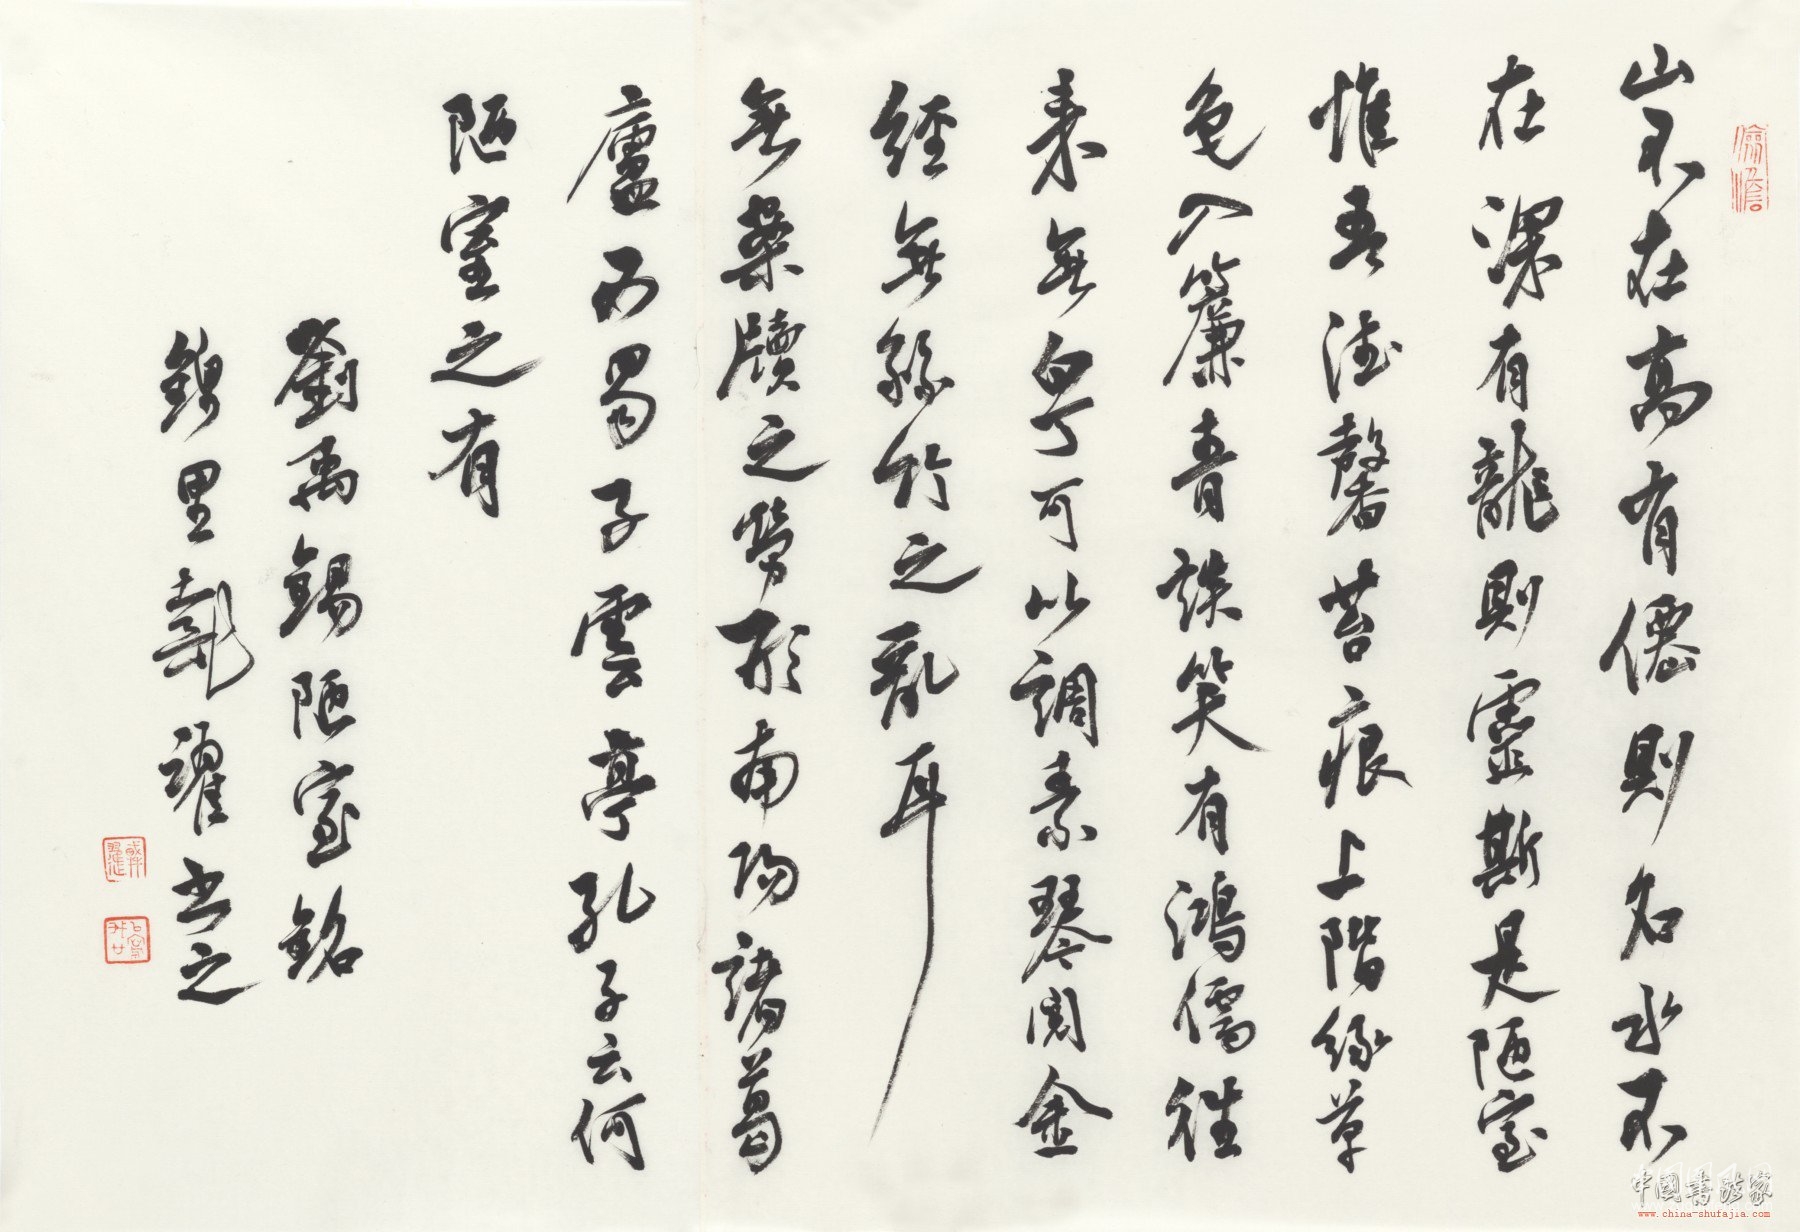 山不在高有僊則名水不
在深有龍則靈斯是陋室
惟吾德馨苔痕上階綠草
色入簾青談笑有鴻儒往
來無白丁可以調素琴閱金
經無絲竹之亂耳
無案牘之勞形南陽諸葛
廬西蜀子雲亭孔子云何
陋室之有
劉禹錫陋室銘
錦里躍书之
中国书法家
www.china-shufajia.com